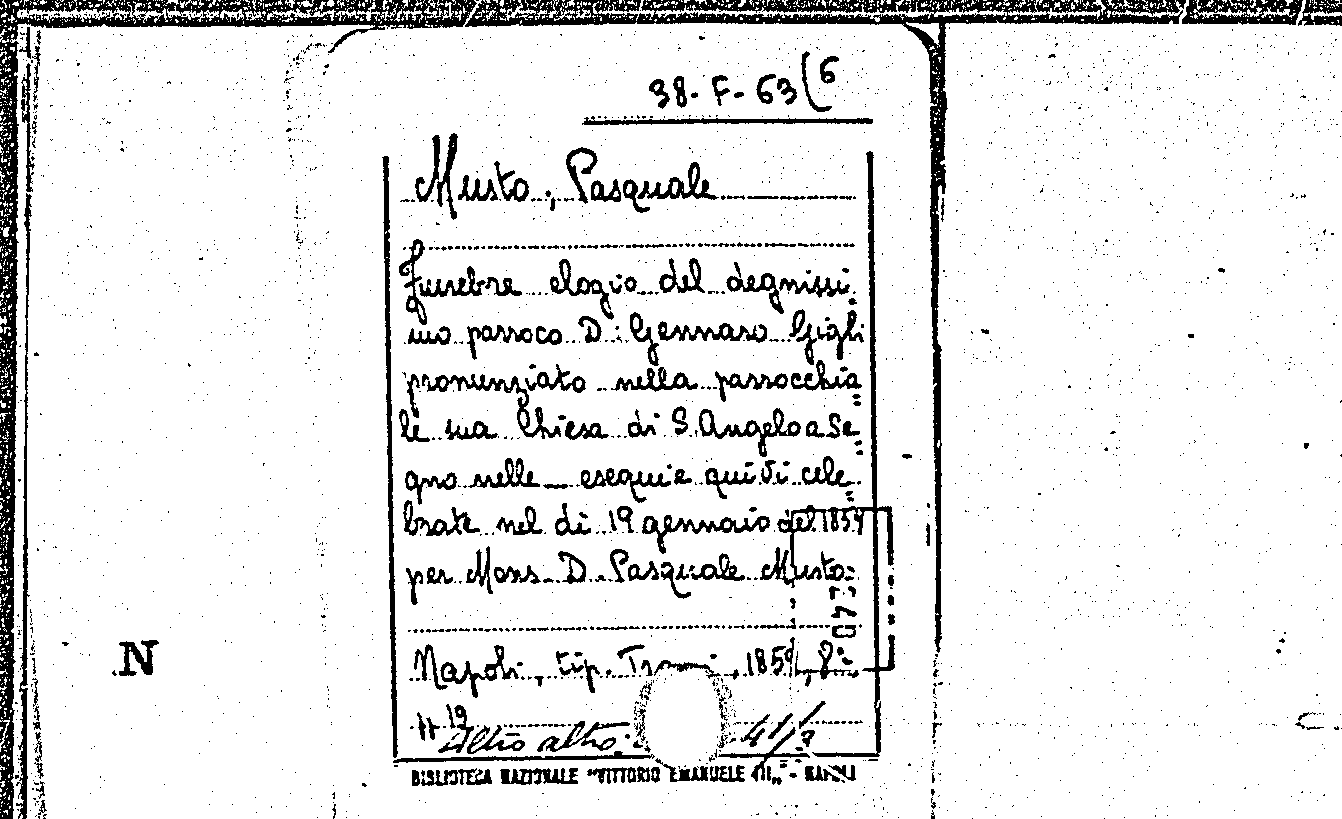 38-F-63(6
Musto, Pasquale
Funebre elogio del degnissi=
mo parroco D. Gennaro Gigli
pronunziato nella parrocchia=
le sua Chiesa di S. Angelo a Se=
gno nelle esequie quivi cele=
brate nel di 19 gennaio del 1859
per Mons. D. Pasquale Musto=
Napoli, tip. 1859, 8º
19
Altro
N
BIBLIOTECA NAZIONALE "VITTORIO EMANUELE III" - NAPOLI